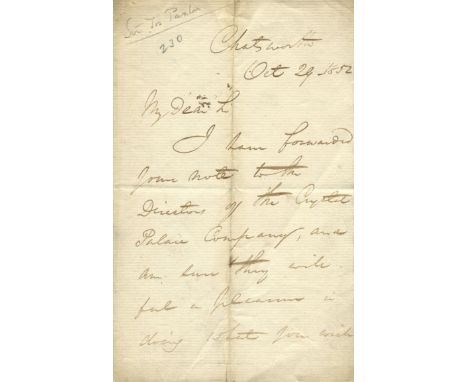 Sir Jos Paxton
230
Chatsworth
Oct 29 1852
My Dear L
I have forwarded
your note to the
Directors of the Crystal
Palace Company, and
am sure they will
feel a pleasure in
doing what you wish